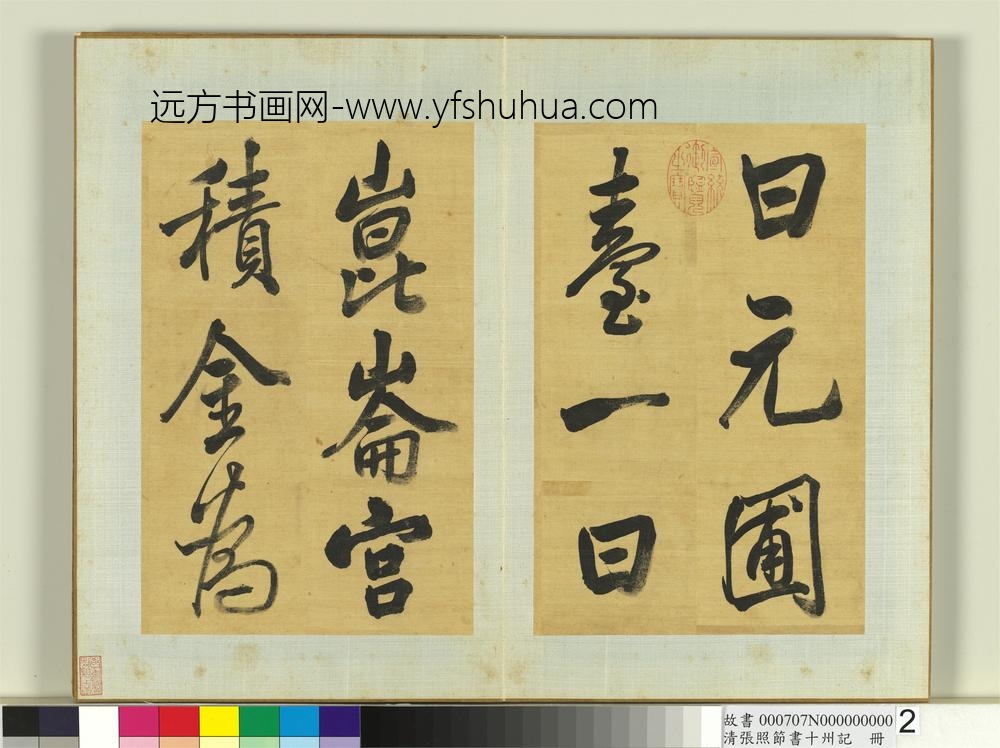 远方书画网-www.yfshuhua.com
曰元圃
臺一曰
崑崙宫
積金為
宣統御覽之寶
故書 000707N000000000 2
清張照節書十州記 冊